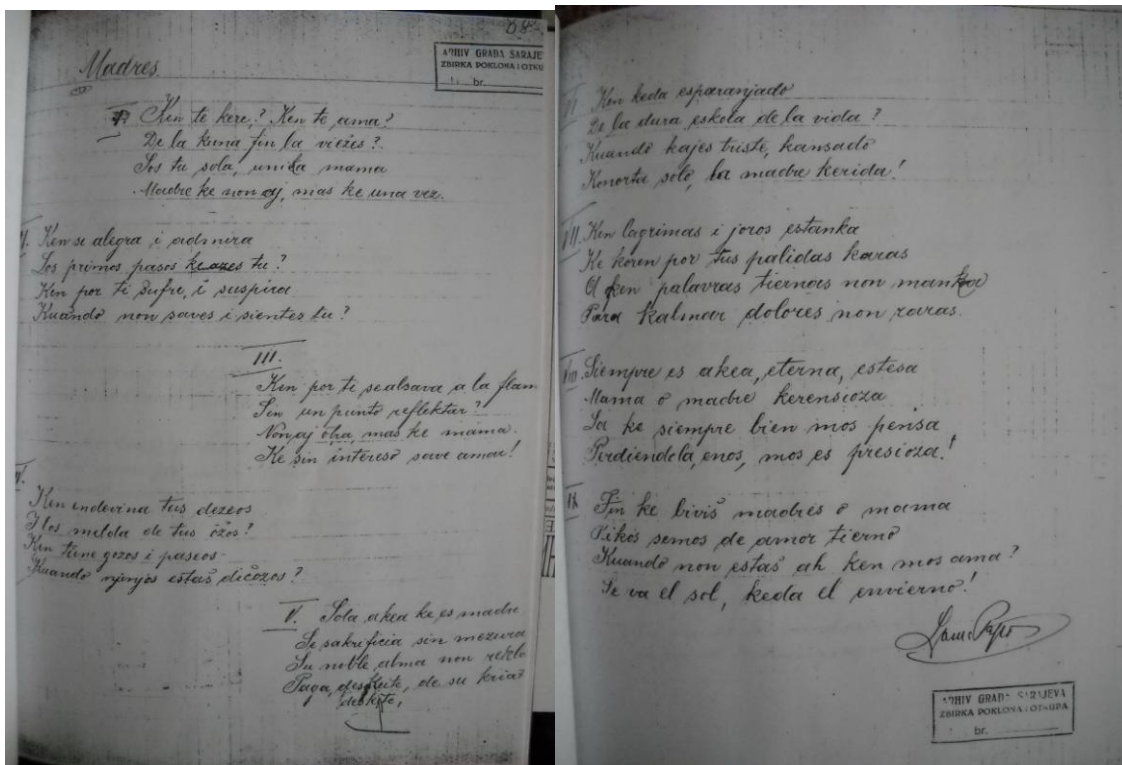 Madres
ARHIV GRADA SARAJE
ZBIRKA POKLONA I OTKU
br.
Ken te kere? Ken te ama?
De la kuna fin la viežes?
Sos tu sola, unika mama
Madre ke non aj, mas ke una vez.
Ken se alegra i admira
Los primos pasos ke azes tu?
Ken por ti sufre, i suspira
Kuando non saves i sientes tu?
III.
Ken por ti se alsava a la flam
Sin un punto reflektar?
Non aj otra, mas ke mama
Ke sin intereso save amar!
Ken endevina tus dezeos
I los melda de tus ožos?
Ken tiene gozos i paseos
Kuando njinjos estaš dičozos?
V. Sola akea ke es madre
Se sakrificia sin mezura
Su noble alma non
Paga, de su kria
deskite,
VI Ken keda esparanjado
De la dura eskola de la vida?
Kuando kajes triste, kansado
Konorta solo, la madre kerida!
VII. Ken lagrimas i joros estanka
Ke koren por tus palidas karas
A ken palavras tiernas non manka
Para kalmar dolores non raras.
VIII Siempre es akea, eterna, estesa
Mama o madre kerensioza
La ke siempre bien mos pensa
Pirdiendola, enos, mos es presioza!
IX Fin ke biviš madres o mama
Čikos semos de amor tierno
Kuando non estaš ah ken mos ama?
Se va el sol, keda el envierno!
ARHIV GRADA SARAJEVA
ZBIRKA POKLONA I OTKUPA
br.